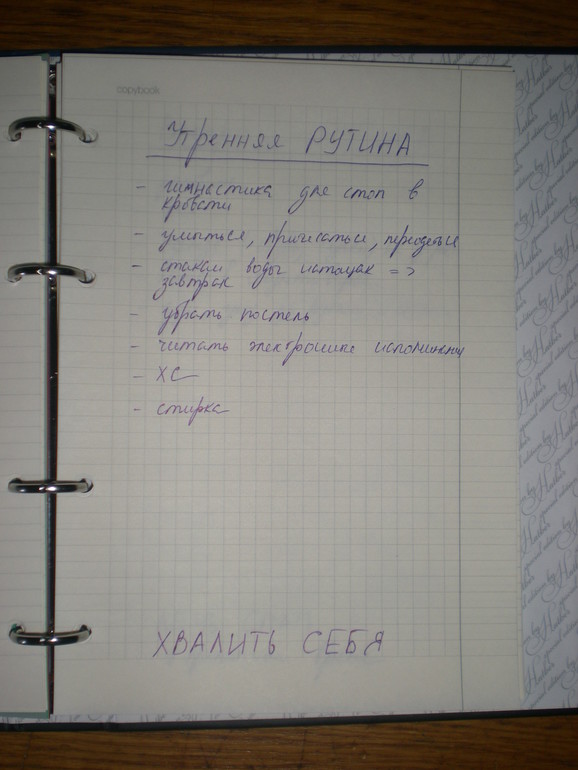 copybook
Утренняя РУТИНА
- гимнастика для стоп в
кровати
- умыться, причесаться, переодеться
- стакан воды натощак =>
завтрак
- убрать постель
- читать электронные
- ХС
- стирка
ХВАЛИТЬ СЕБЯ